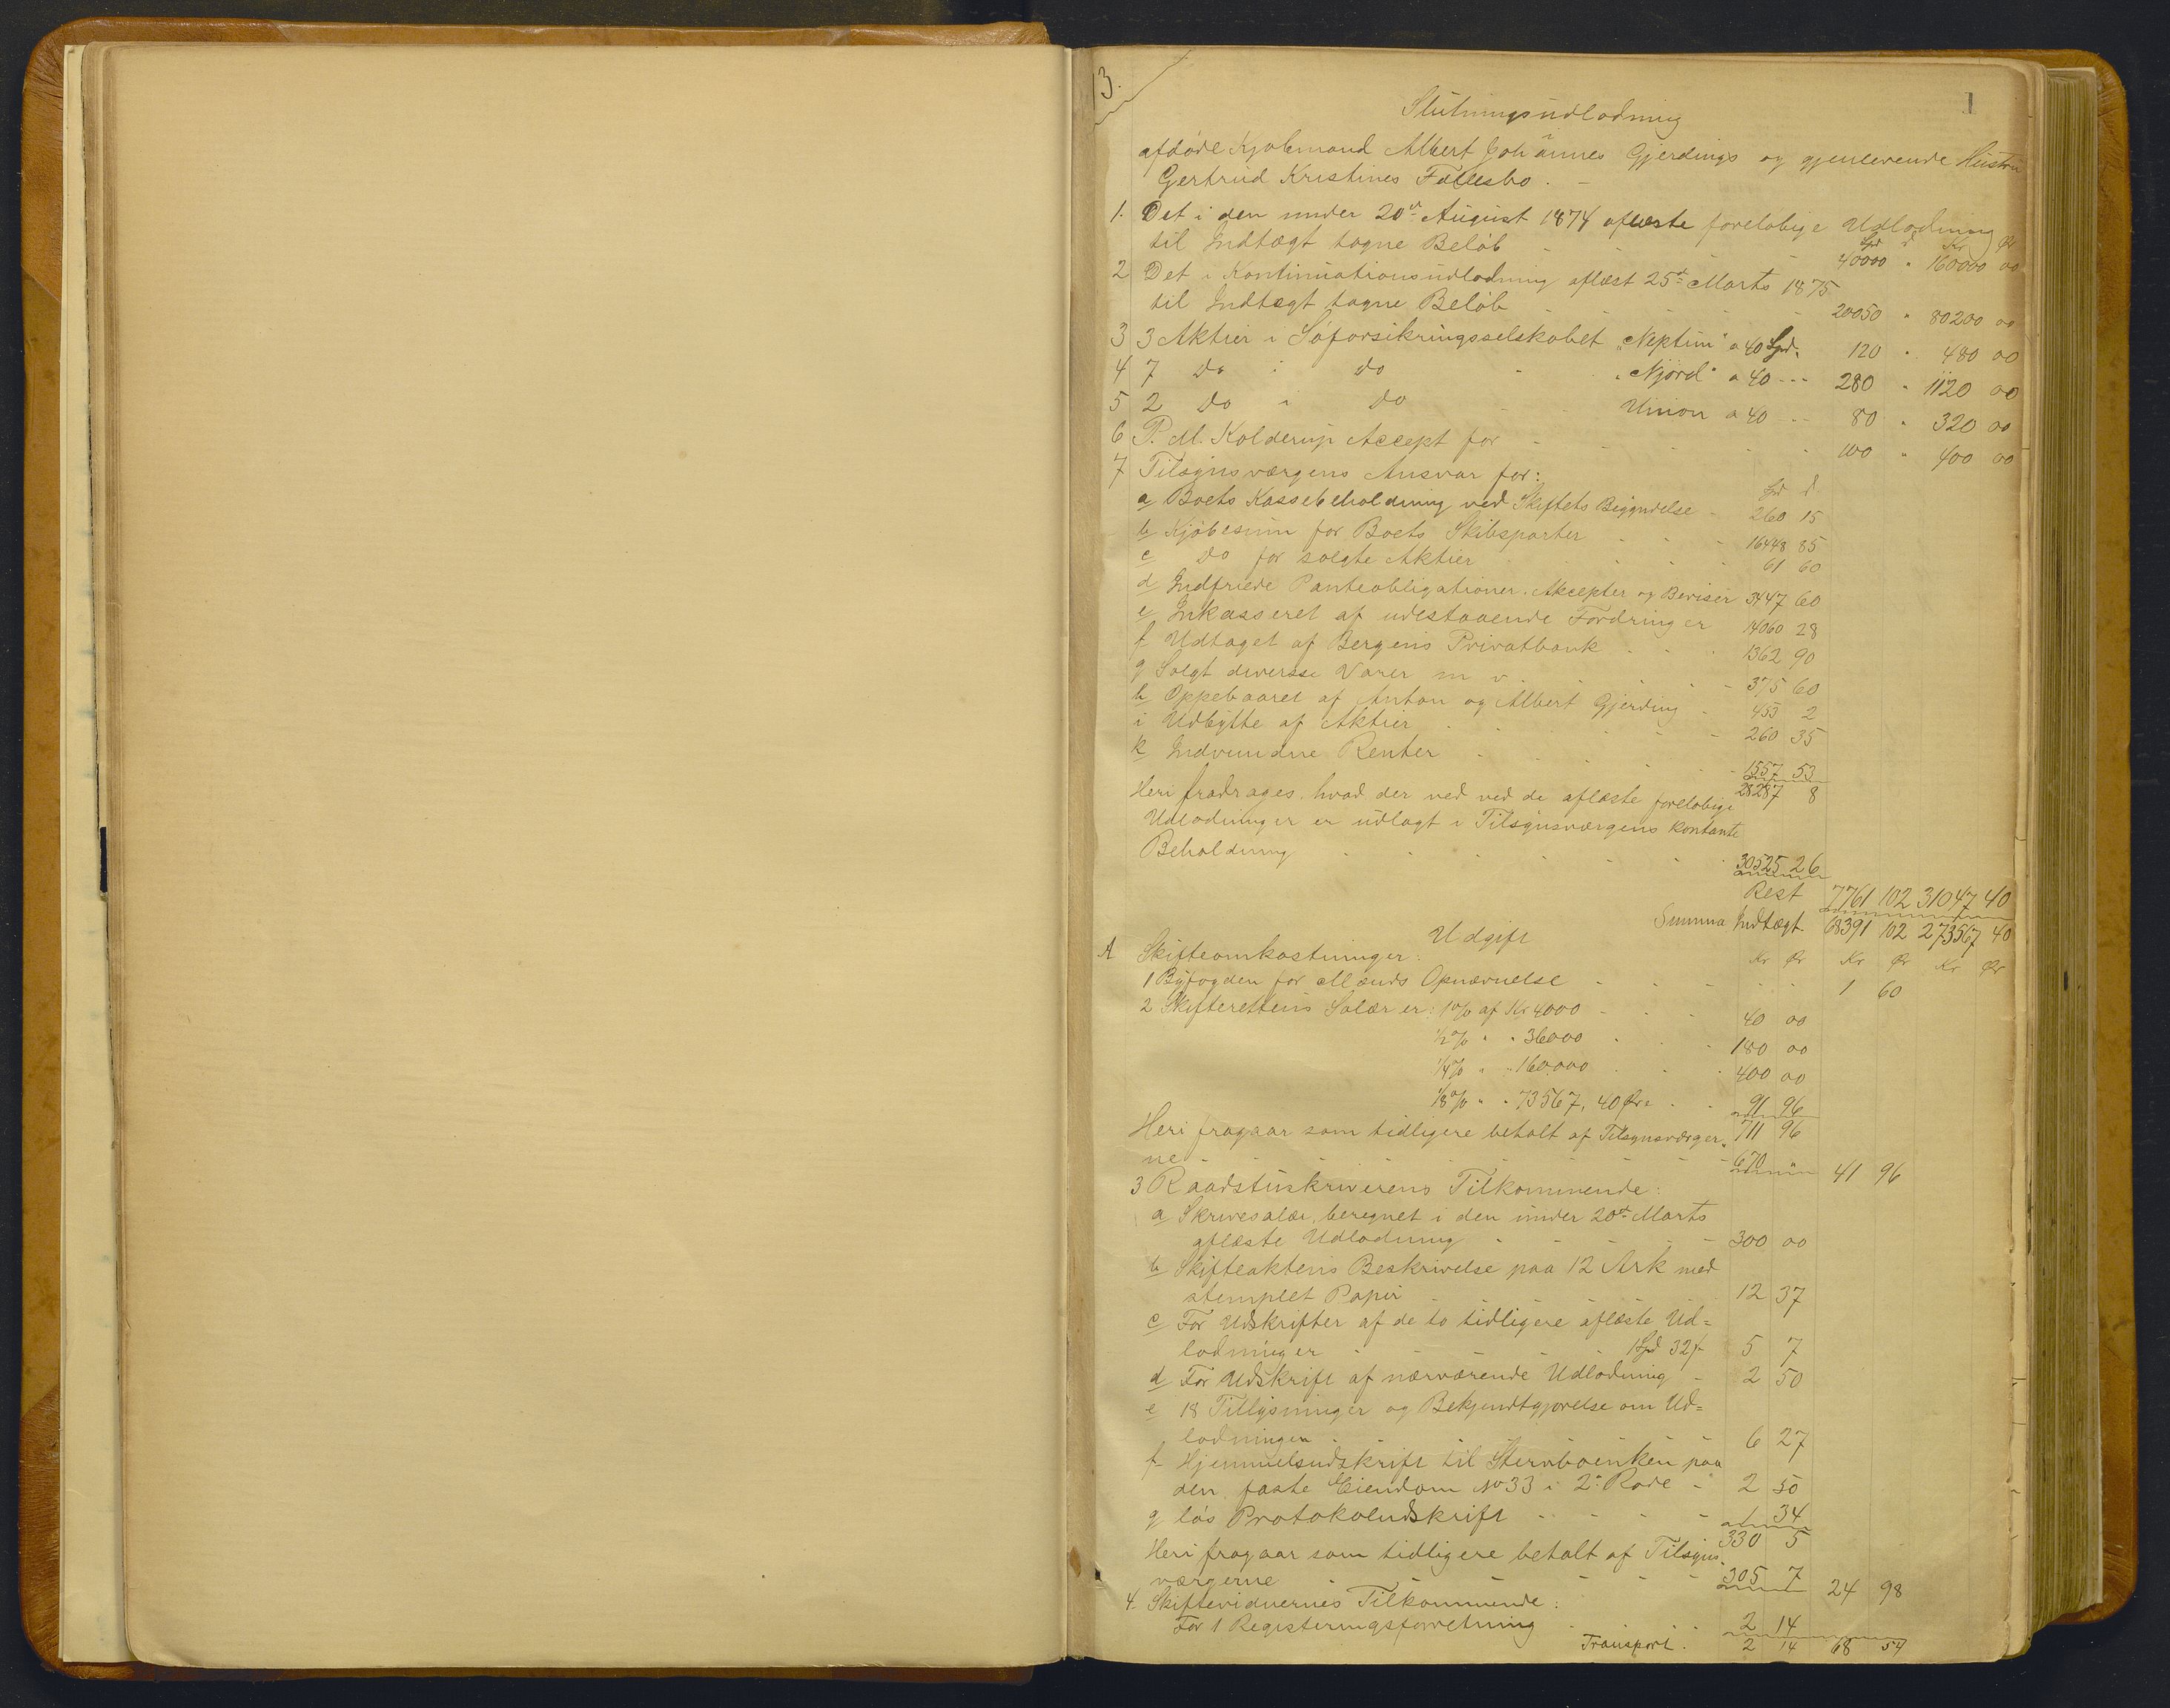 13.
1
Slutningsudlodning
afdøde Kjøbmand Albert Johannes Gjerdings og gjenlevende Hustru
Gertrud Kristines Fællesbo.
1. Det i den under 20de August 1874 aflæste foreløbige Udlodning Spd ₰ Kr Ør
til Indtægt tagne Beløb - - - 40000 " 160000 00
2 Det i Kontinuationsudlodning aflæst 25de Marts 1875
til Indtægt tagne Beløb - - - 20050 " 80200 00
3 3 Aktier i Søforsikringsselskabet "Neptun" a 40 Spd. 120 " 480 00
4 7 do i do - "Njord" a 40 --- 280 " 1120 00
5 2 do i do - - Union a 40 --- 80 " 320 00
6 P. M. Kolderup Accept for - - - 100 " 400 00
7 Tilsynsværgens Ansvar for: Spd ₰
a Boets Kassebeholdning ved Skiftets Begyndelse - 260 15
b Kjøbesum for Boets Skibsparter - - - 16448 85
c Do for solgte Aktier - - - 61 60
d Indfriede Panteobligationer, Akcepter og Beviser 3447 60
e Inkasseret af udestaaende Fordringer 14060 28
f Udtaget af Bergens Privatbank - - - 1362 90
g Solgt diversse Varer m v. - - - 375 60
h Oppebaaret af Anton og Albert Gjerding - 453 2
i Udbytte af Aktier - - - 260 35
k Indvundne Renter - - - 1557 53
28287 8
Heri fradrages hvad der ved ved de aflæste foreløbige
Udlodninger er udlagt i Tilsynsværgens kontante
Beholdning - - - 30525 26
Rest 7761 102 31047 40
Summa Indtægt. 68391 102 273567 40
Udgift
A Skifteomkostninger: Kr Ør Kr Ør Kr Ør
1 Byfogden for Mænds Opnævnelse - - - 1 60
2 Skifterettens Salær er: 1% af Kr 4000 - - - 40 00
1/2% " " 36000 - - 180 00
1/4% " " 160,000 - - 400 00
1/8% " " 73567, 40 Øre - - 91 96
711 96
Heri fragaar som tidligere betalt af Tilsynsværger-
ne - - - 670 " 41 96
3 Raadstuskriverens Tilkommende:
a Skrivesalær, beregnet i den under 20de Marts
aflæste Udlodning - - - 300 00
b Skifteaktens Beskrivelse paa 12 Ark med
stemplet Papir - - - 12 37
c For Udskrifter af de to tidligere aflæste Ud=
lodninger - - - 1 Spd 32 ₰ 5 7
d For Udskrift af nærværende Udlodning - 2 50
e 18 Tillysninger og Bekjendtgjørelse om Ud=
lodningen - - - 6 27
f Hjemmelsudskrift til Stervboenken paa
den faste Eiendom No 33 i 2: Rode - 2 50
g løs Protokoludskrift - - - 1 34
330 5
Heri fragaar som tidligere betalt af Tilsyns-
værgerne - - - 305 7 24 98
4. Skiftevidnernes Tilkommende:
For 1 Registeringsforretning - - - 2 14
Transport. 2 14 68 54